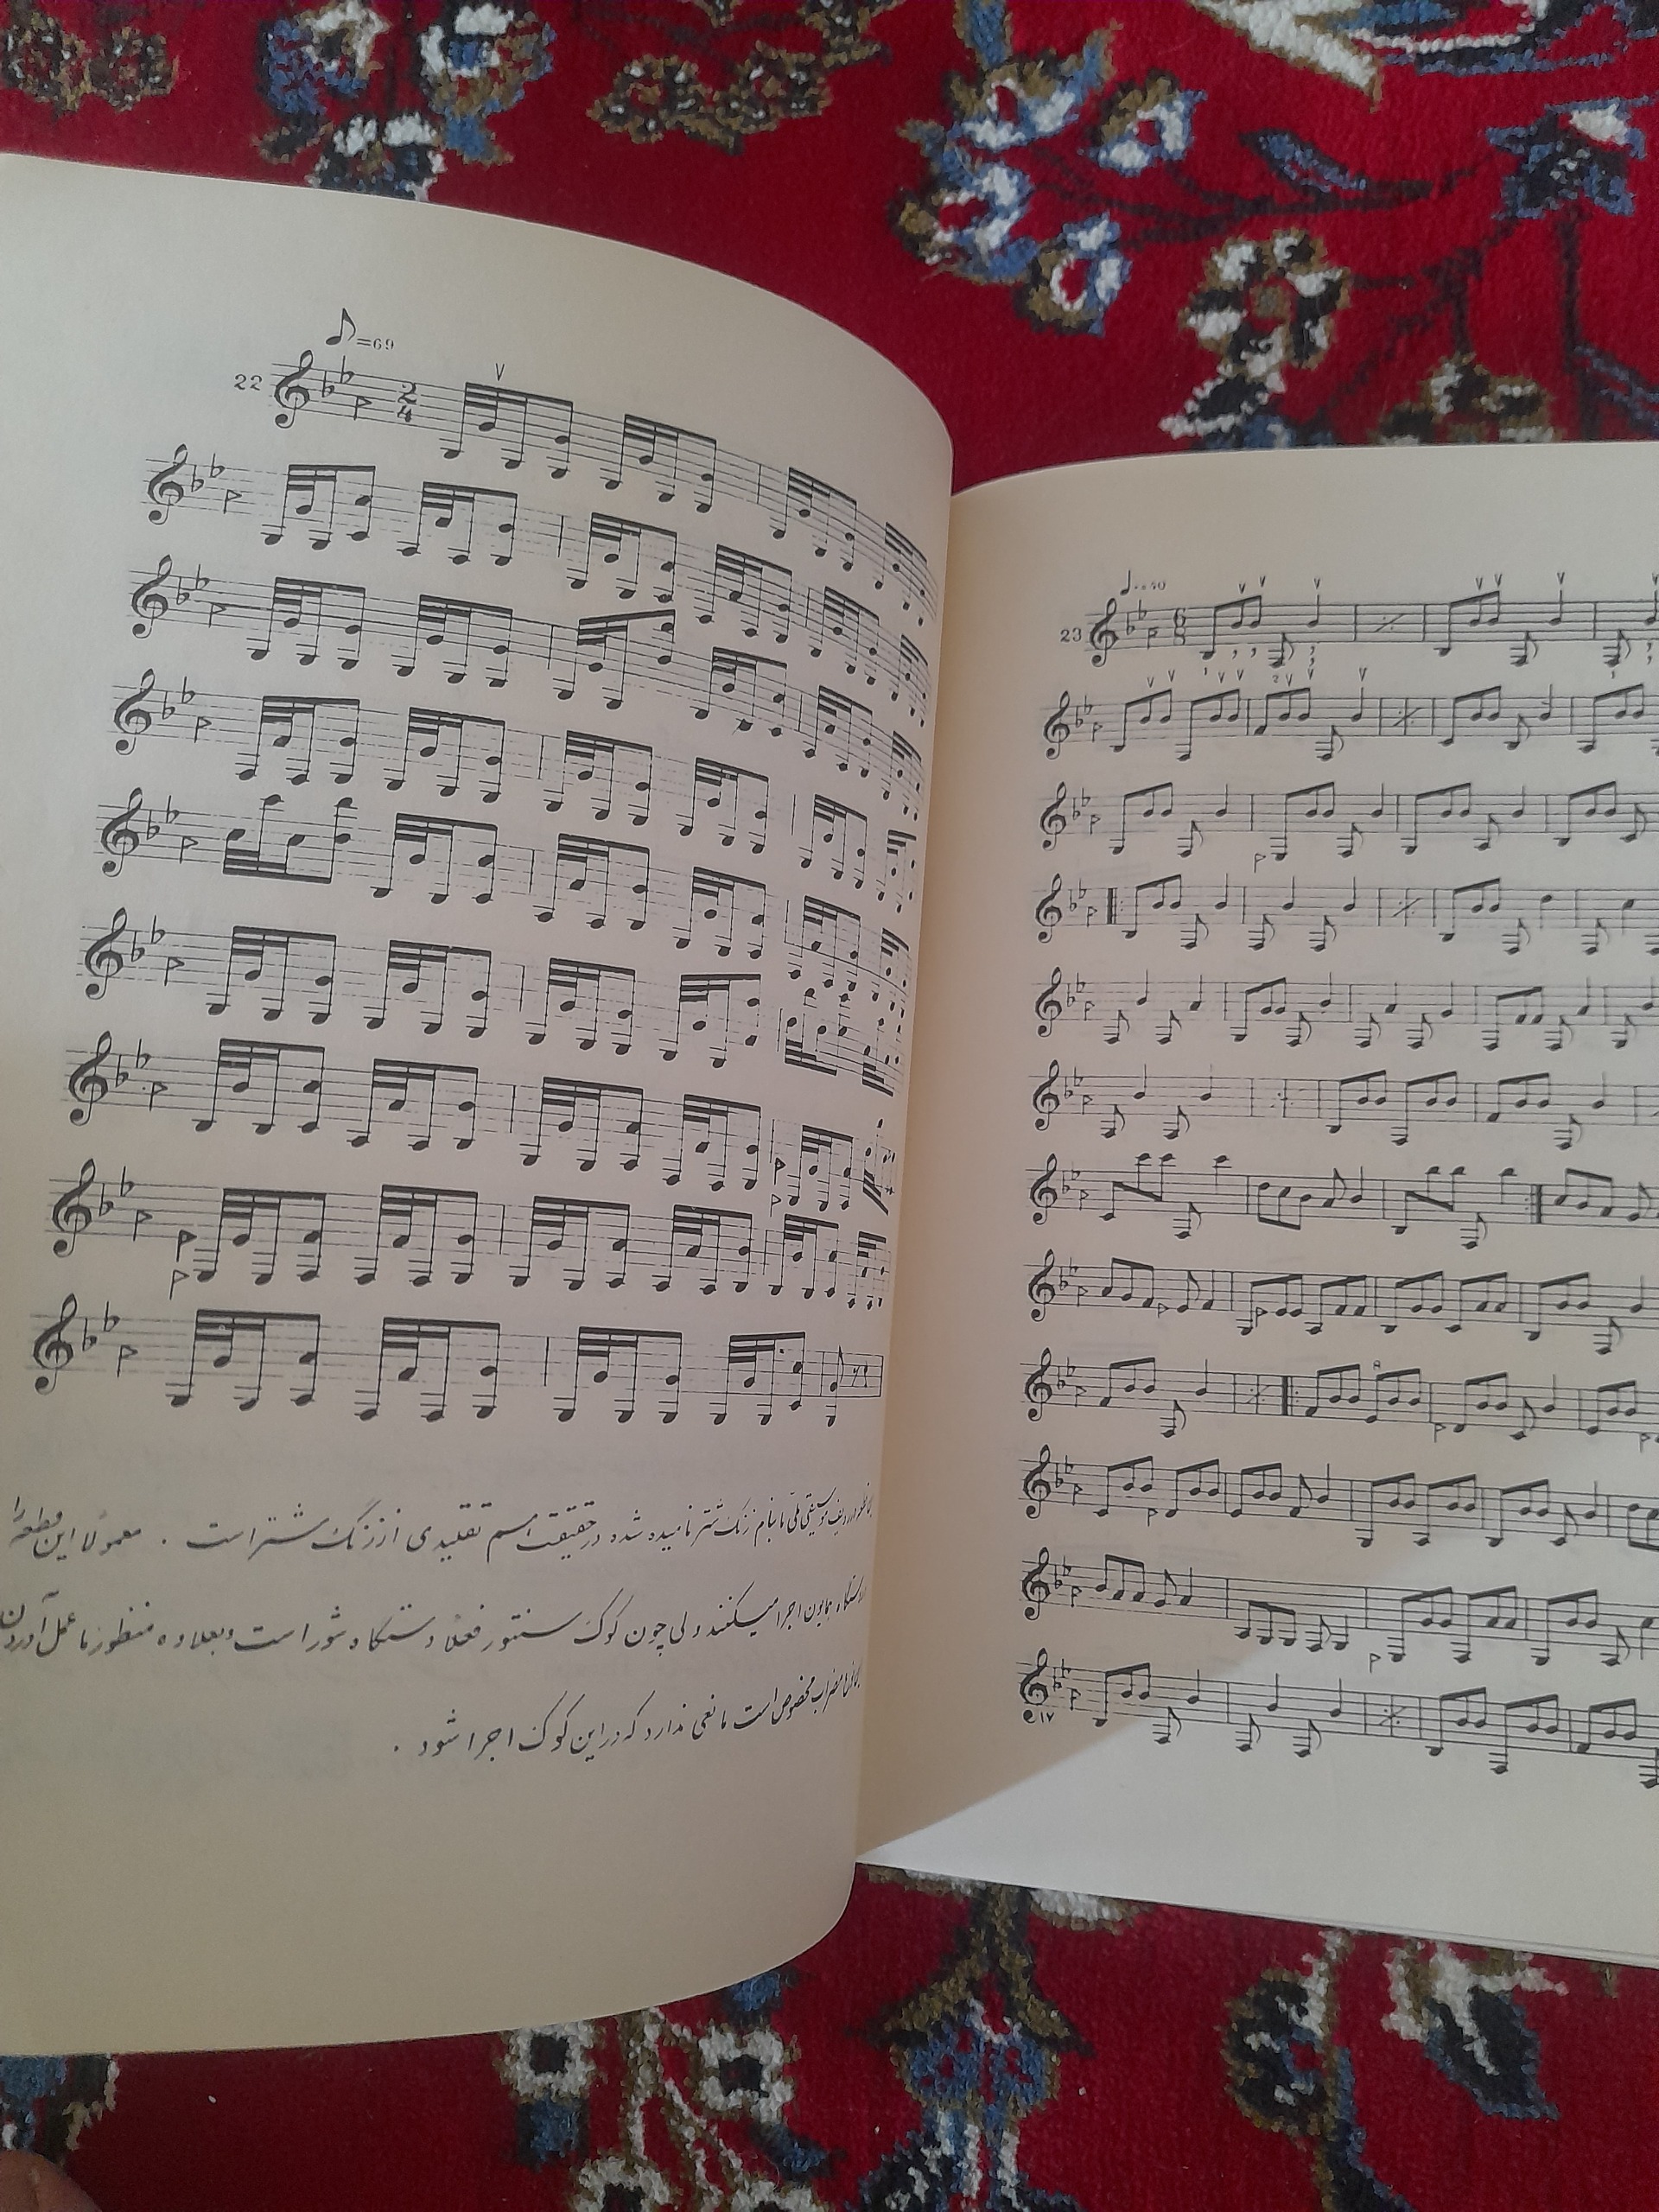 ♪=69
22
2
4
در ردیف موسیقی ملی ما بنام زنگ شتر نامیده شده در حقیقت اسم تقلیدی از زنگ شتر است . معمولاً این قطعه را
دستگاه همایون اجرا میکنند ولی چون کوک سنتور فعلاً دستگاه شور است و بعلاوه منظور ما عمل آوردن
مضراب مخصوص است مانعی ندارد که در این کوک اجرا شود .
23
6
8
۱۷